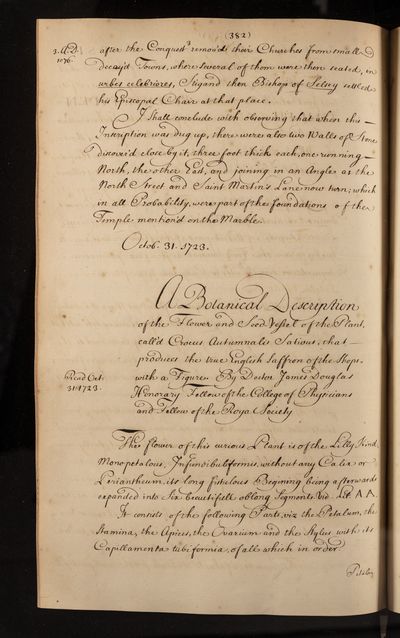 (382)
3. A.D. after the Conquest³ remov'd their Churches from small
1076. Decay'd Towns, where several of them were then seated, in
urbes celebriores, Stigand then Bishop of Selsey settled
his Episcopal Chair at that place.
I Shall conclude with observing that when this
Inscription was dug up, there were also two Walls of Stone
discover'd close by it, three foot thick each, one running
North, the other East, and joining in an Angle at the
North Street and Saint Martin's Lane now turn; which
in all Probability, were part of the foundations of the
Temple mention'd on the Marble.
Octob. 31. 1723.
A Botanical Description
of the Flower and Seed Vessel of the Plant,
call'd Crocus Autumnalis Sativus, that
produces the true English Saffron of the Shops.
Read Oct. with a Figure. By Doctor James Douglas
31. 1723. Honorary Fellow of the College of Physicians
and Fellow of the Royal Society
The flower of this curious Plant is of the Lilly Kind,
Monopetalous, Infundibuliformis, without any Calix or
Perianthium, its long fistulous Begining being afterwards
expanded into Six beautifull oblong Segments, Vid. Lit. A A.
It consists of the following Parts, viz. the Petalum, the
Stamina, the Apices, the Ovarium and the Stylus with its
Capillamenta tubiformia, of all which in order.